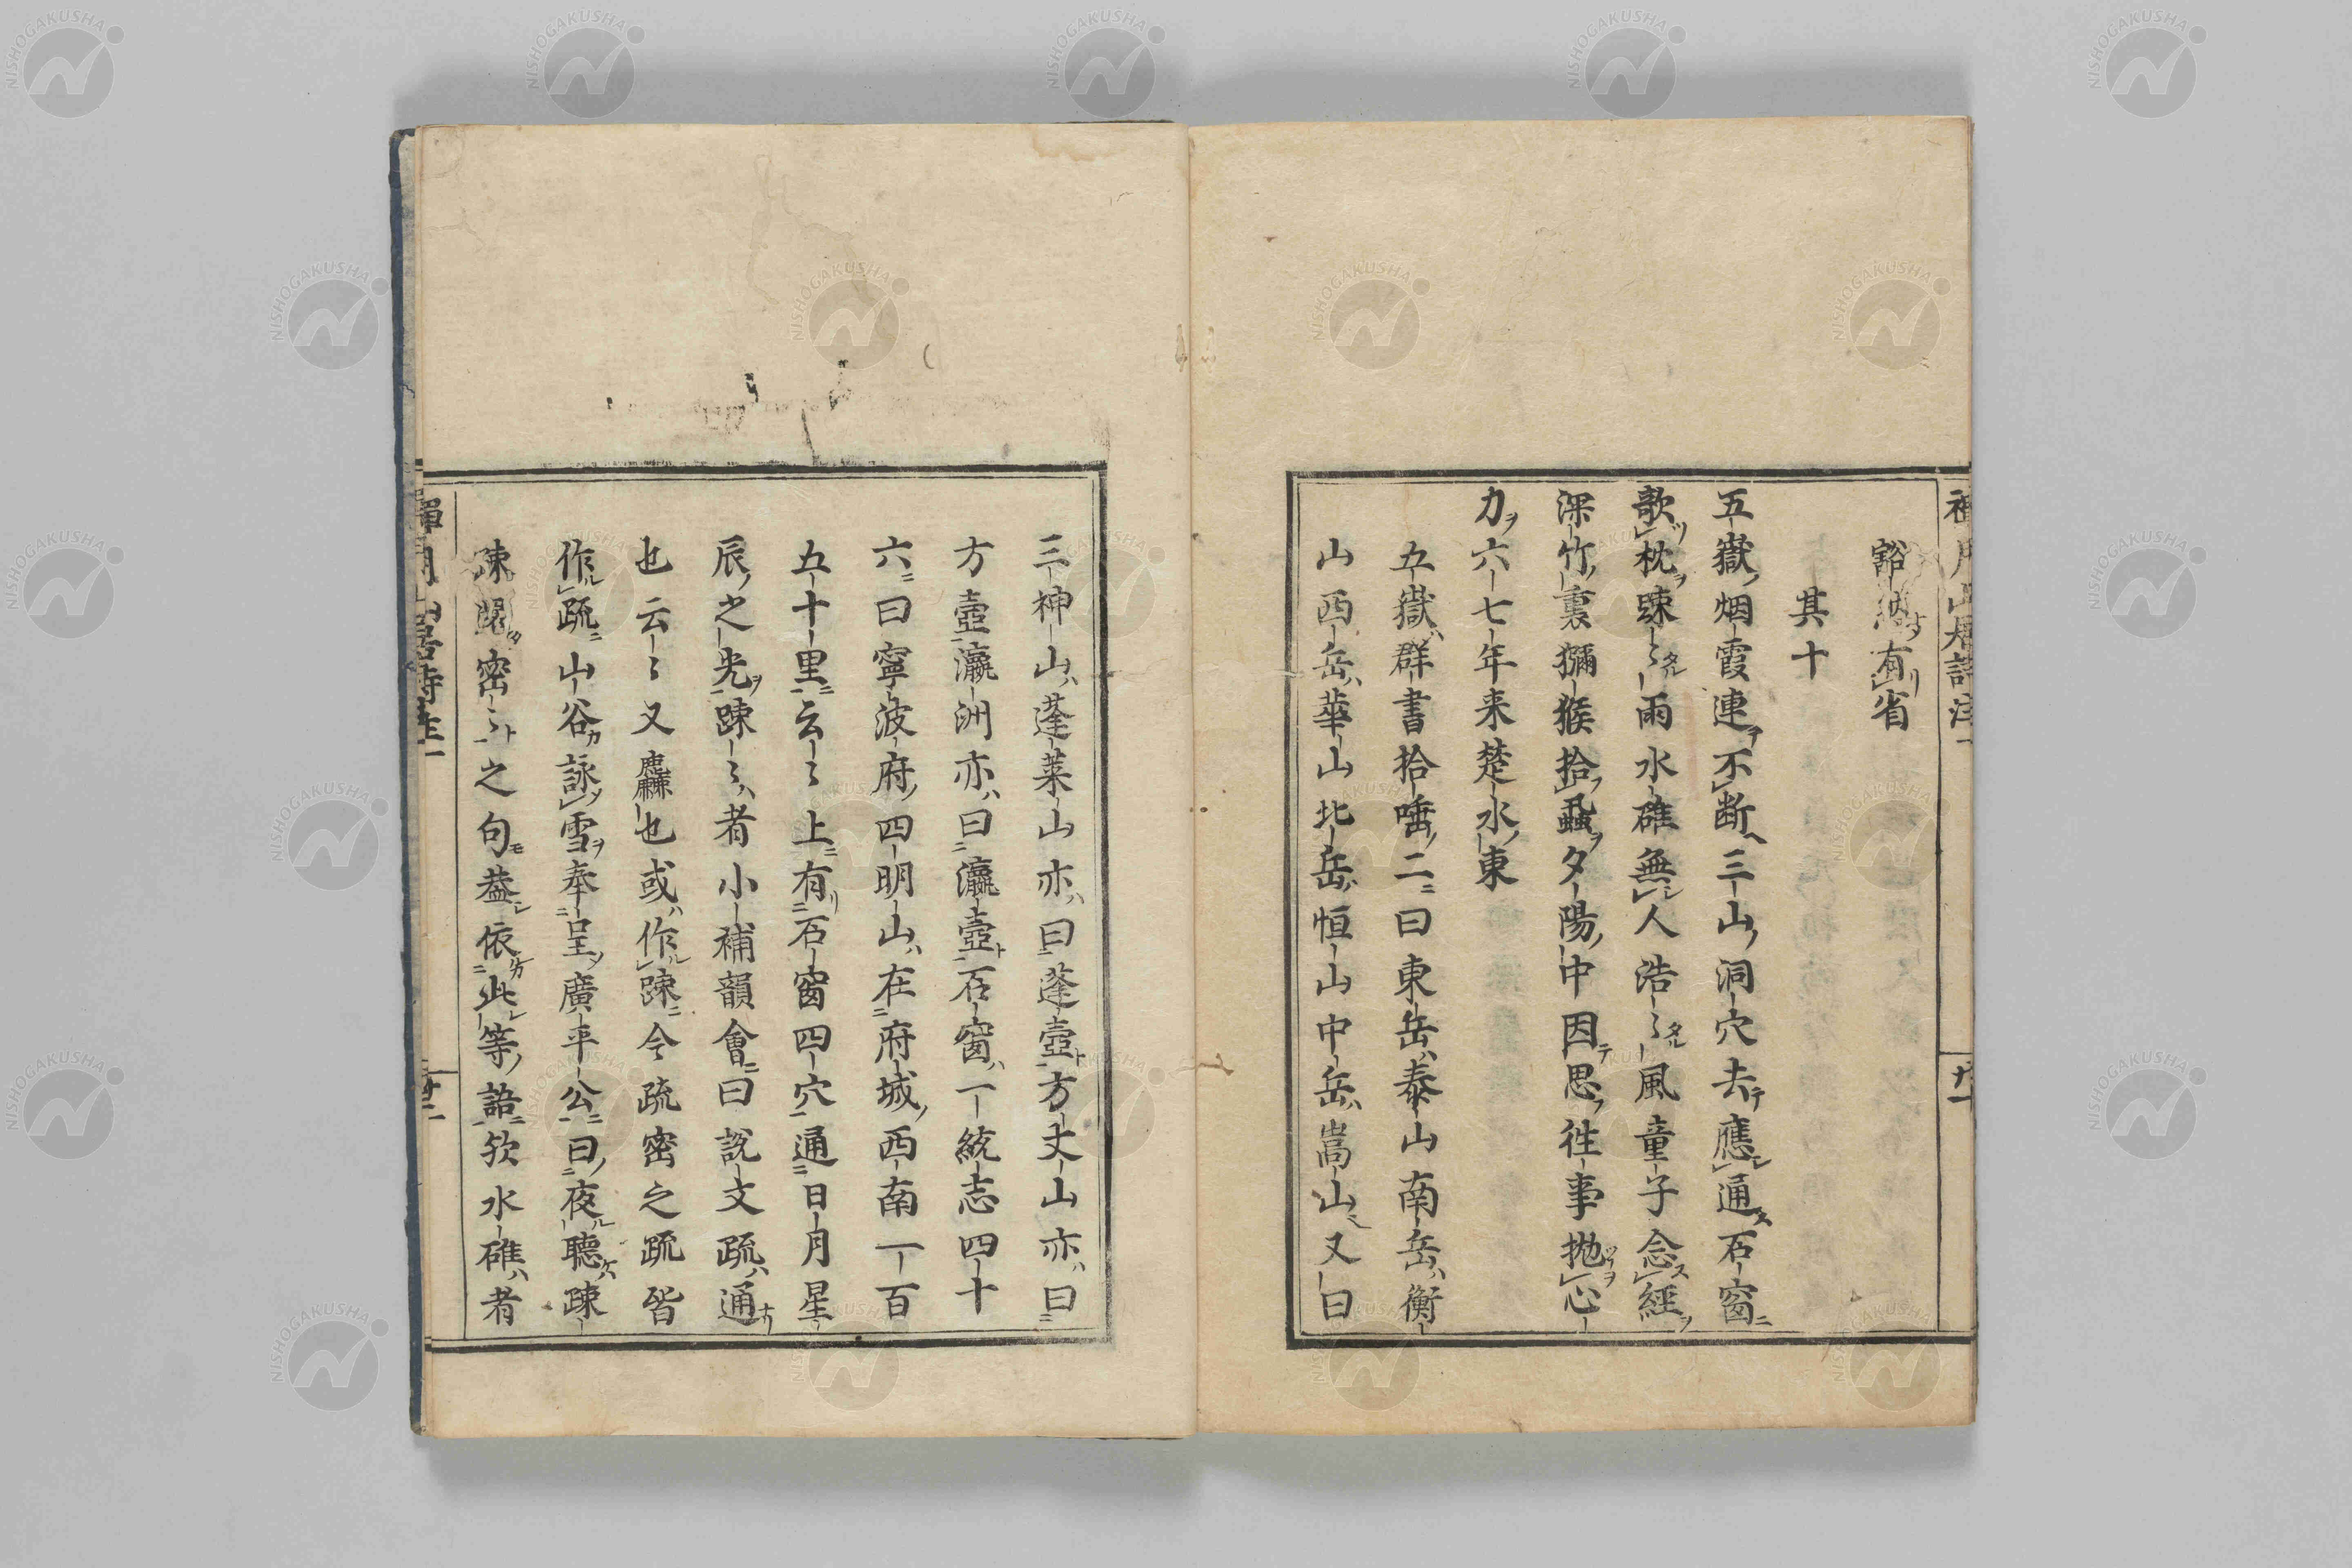 豁然有省
其十
五嶽烟霞連不断三山洞穴去應通石窗
歌枕踈〻雨水碓無人浩〻風童子念經
深竹裏獼猴拾蝨夕陽中因思往事抛心
力六七年来楚水東
五嶽群書拾唾二曰東岳泰山南岳衡
山西岳華山北岳恒山中岳嵩山又曰
三神山蓬萊山亦曰蓬壺方丈山亦曰
方壺瀛洲亦曰瀛壺石窗一統志四十
六曰寧波府四明山在府城西南一百
五十里云〻上有石窗四穴通日月星
辰之光踈〻者小補韻會曰說文疏通
也云〻又麤也或作踈今疏密之疏皆
作疏山谷詠雪奉呈廣平公曰夜聽踈
踈閣密〻之句葢依此等語欤水碓者
禪月山居詩註
廿一
廿二
NISHOGAKUSHA